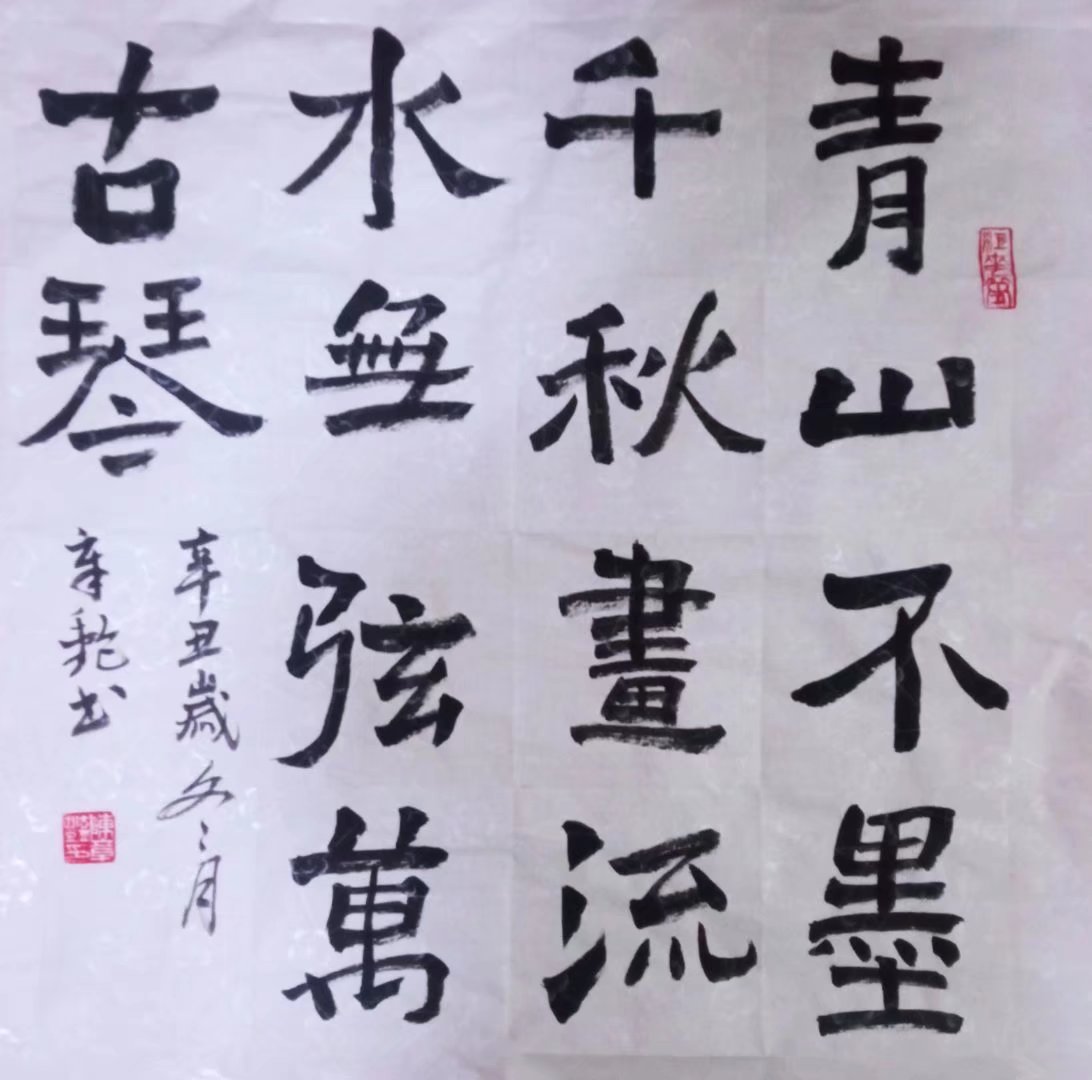 青山不墨
千秋畫流
水無弦萬
古琴
辛丑歲冬月
章乾书